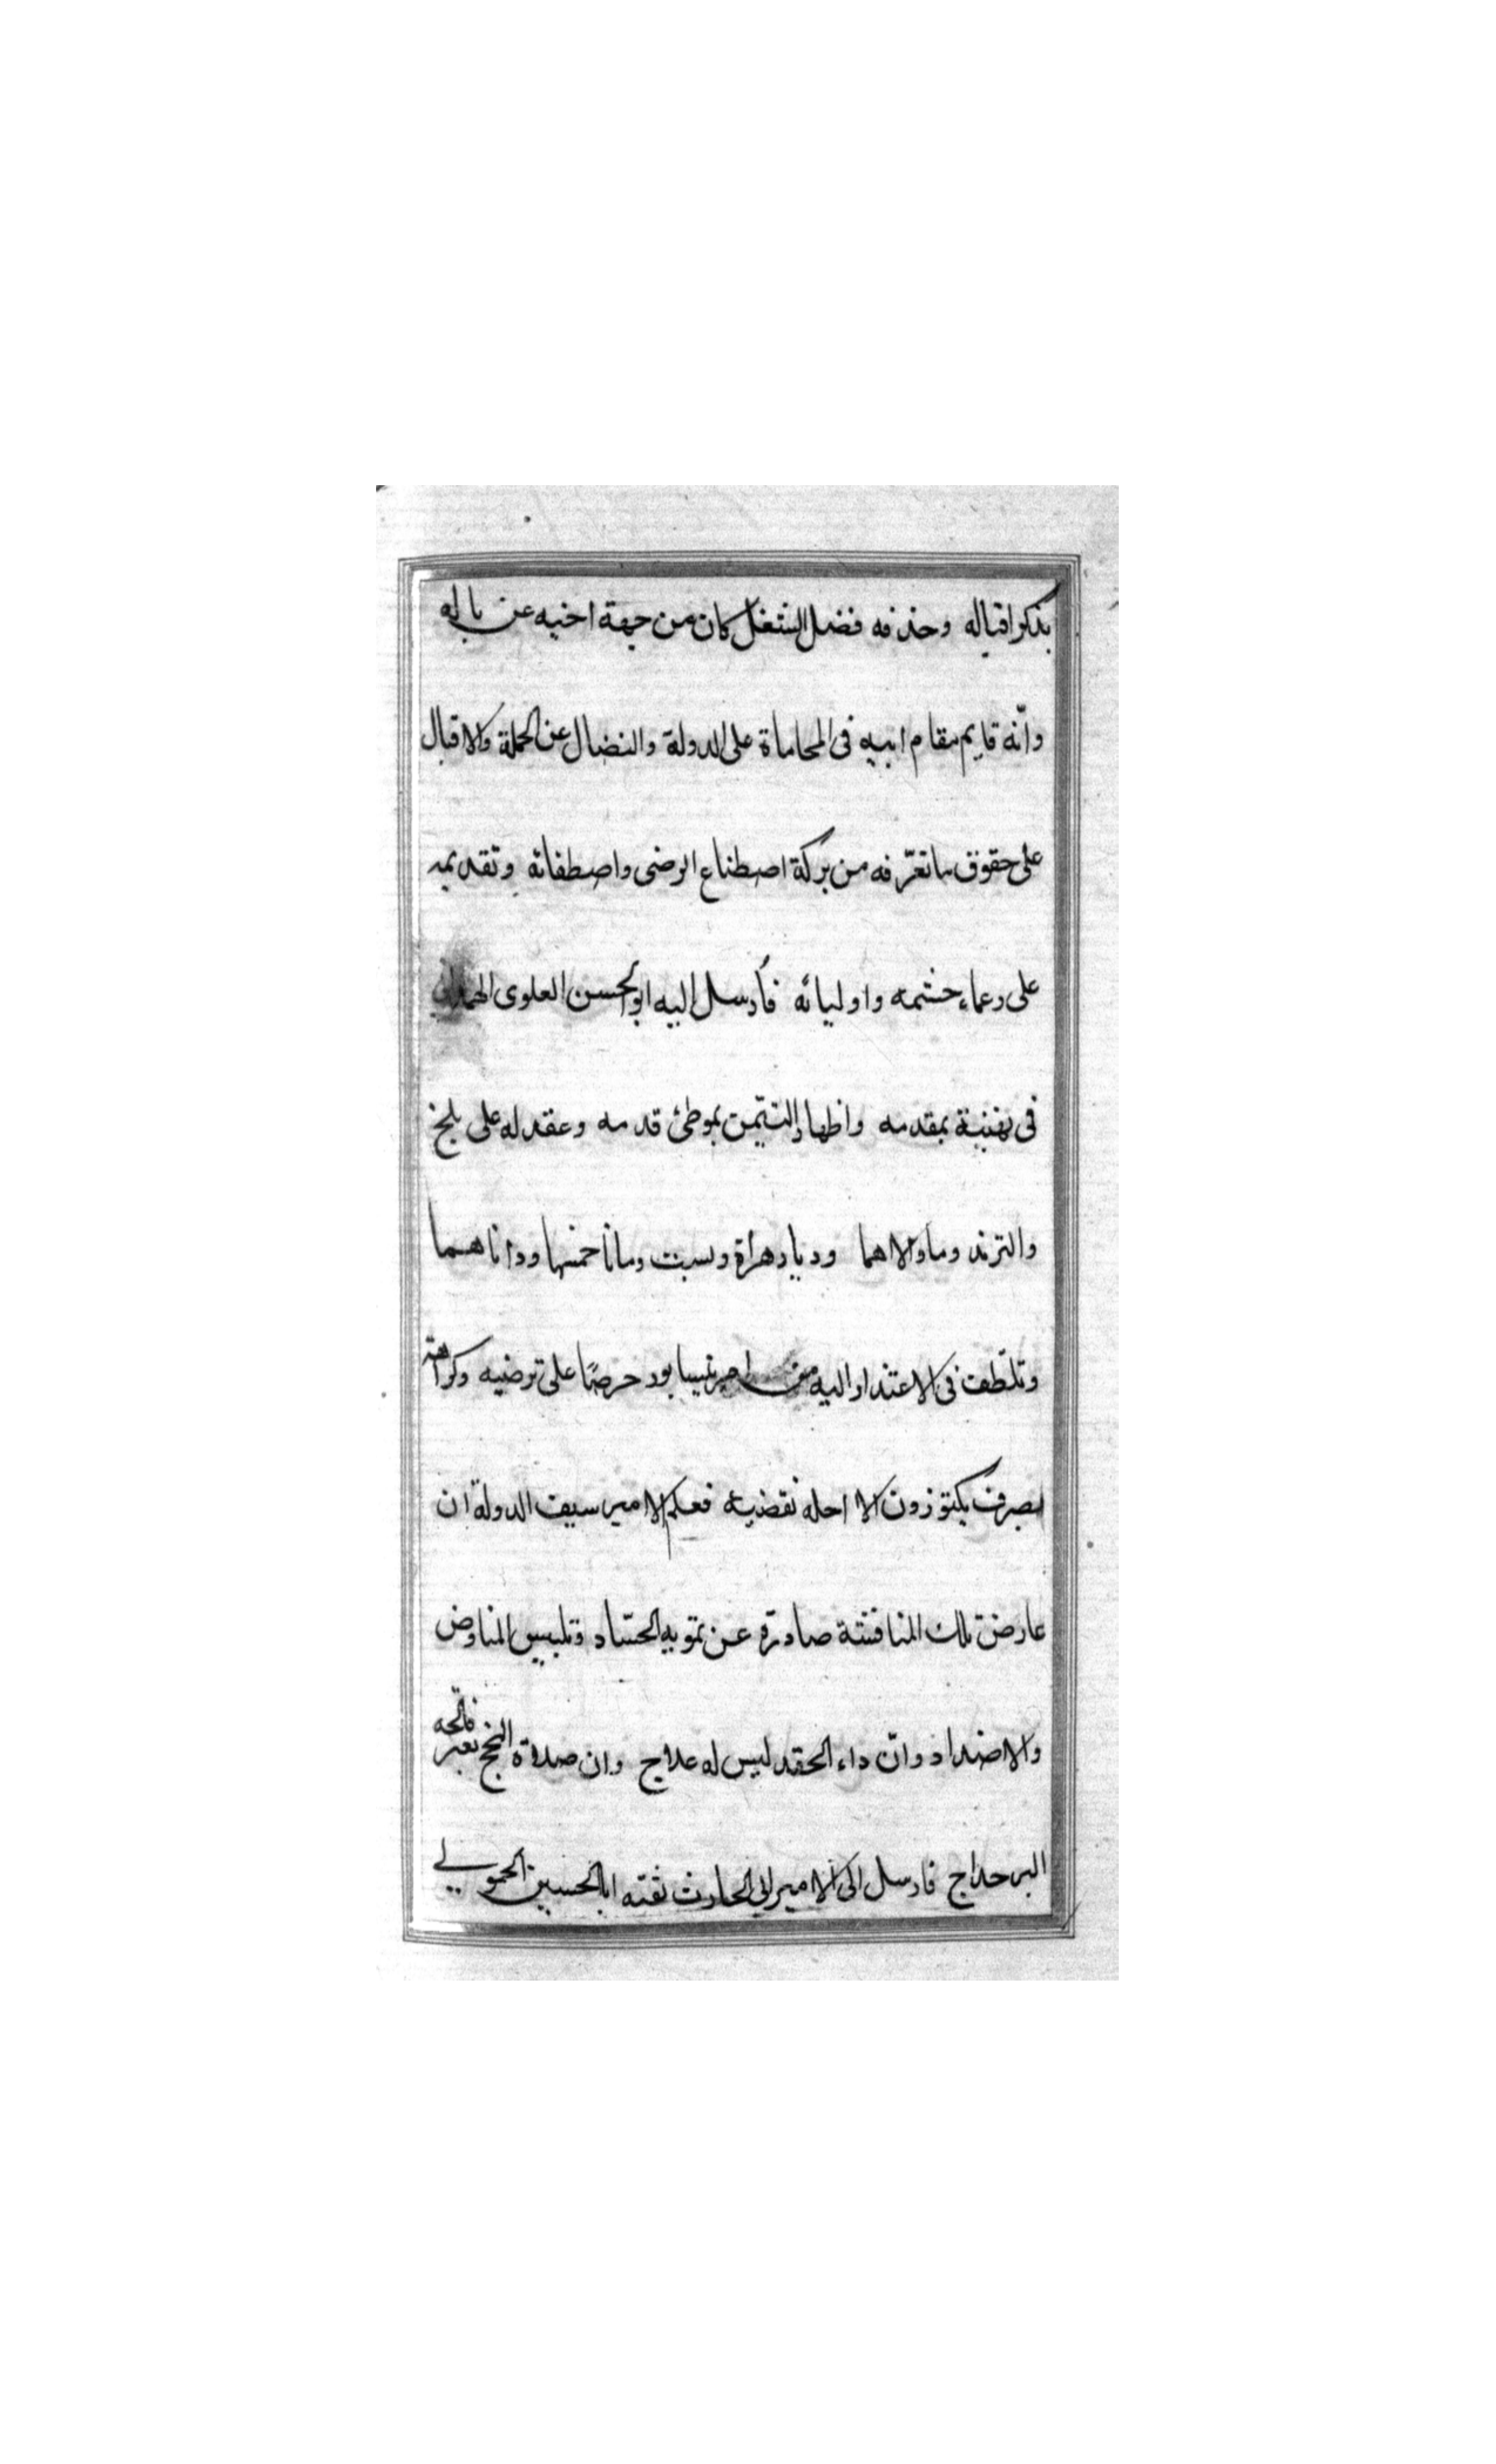 بذكر اقباله وحذفه فضل الشغل كان من جهة اخيه عن باله
وانّه قايم مقام ابيه فى المحاماة على الدولة والنضال عن الحملة والاقبال
على حقوق ما تعرّفه من بركة اصطناع الرضى واصطفائه وتقديمه
على زعماء حشمه واوليائه فأرسل اليه ابو الحسن العلوى الهمدانى
فى تهنيية بمقدمه واظهار التيّمن بموطئ قدمه وعقد له على بلخ
والترمد وما والاهما وديار هراة وبست وما
وتلطّف فى الاعتذار اليه من امر نيسابور حرصًا على ترضيه وكراهة
لصرف بكتوزون الا احله نقضيه فعلم الامير سيف الدولة ان
عارض تلك المناقشة صادرة عن تمويه الحسّاد وتلبيس المناوض
والاضداد وانّ داء الحقد ليس له علاج وان صلاة النجح بغير فاتحه
البر خداج فارسل الى الامير ابى الحارث ثقته ابا الحسين الحمولى